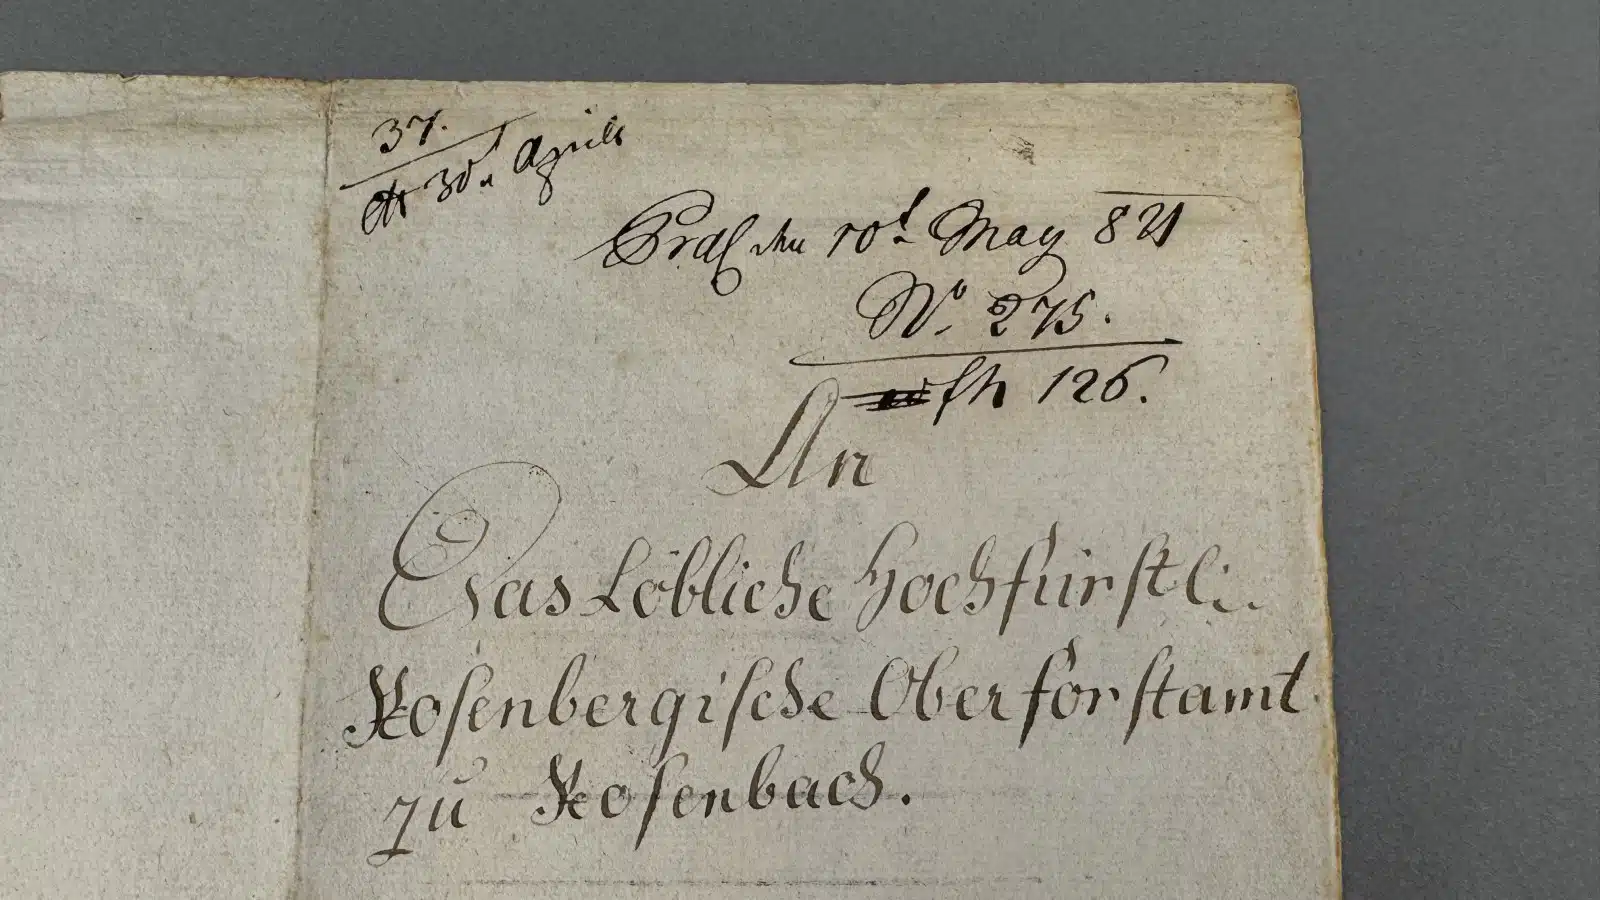 37.
de 30n Aprils
Praes den 10t May 821
No. 275.
fh 126.
An
Das Löbliche Hochfürstli.
Rosenbergische Oberforstamt
zu Rosenbach.